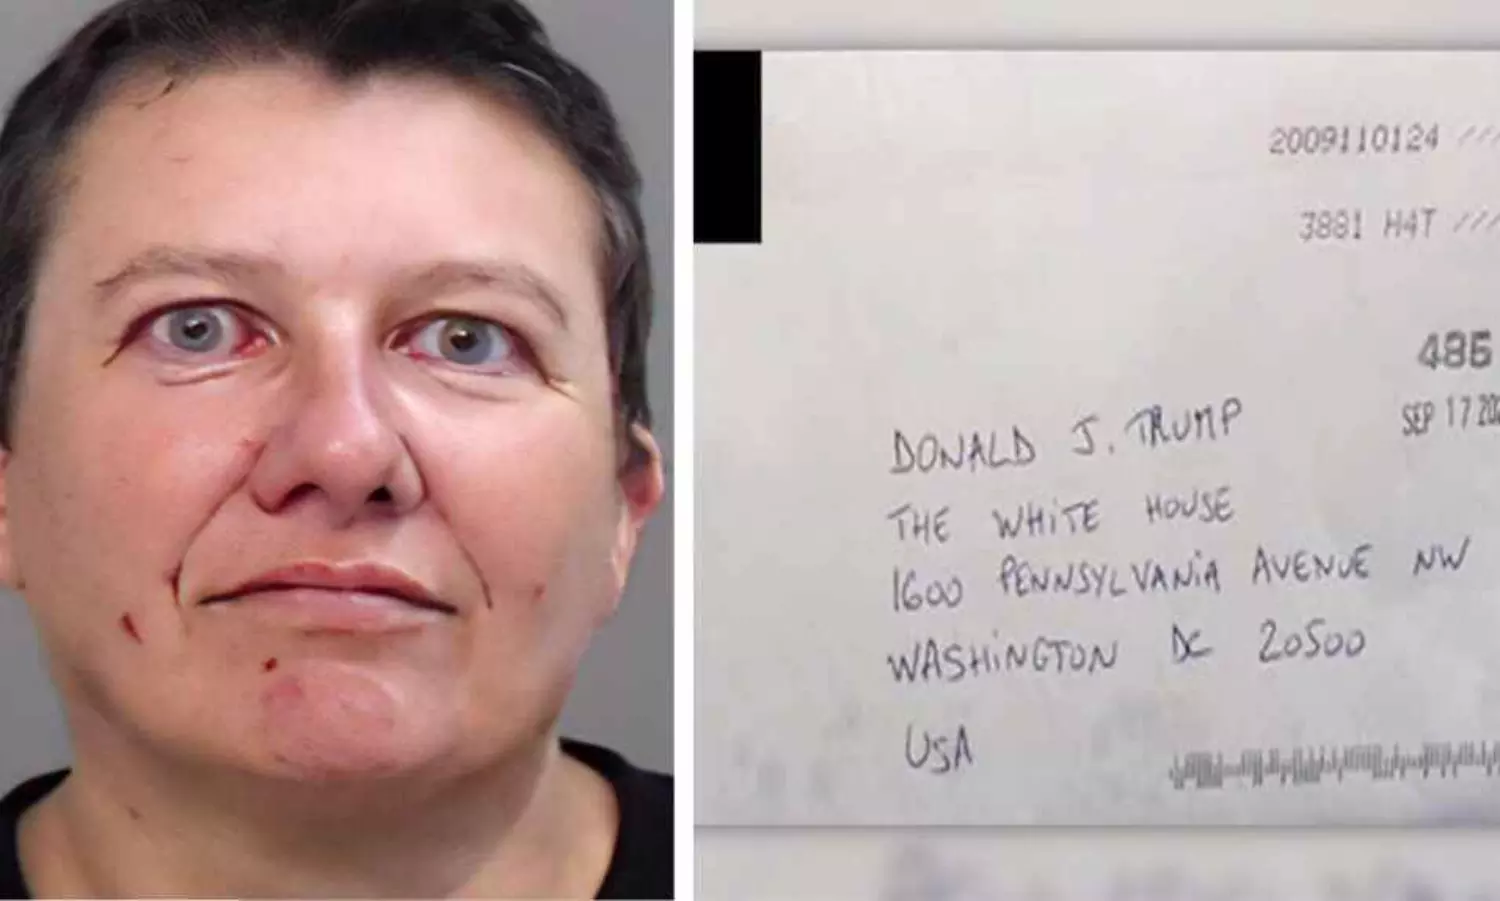 2009110124
3881 H4T
486
SEP 17 202
DONALD J. TRUMP
THE WHITE HOUSE
1600 PENNSYLVANIA AVENUE NW
WASHINGTON DC 20500
USA